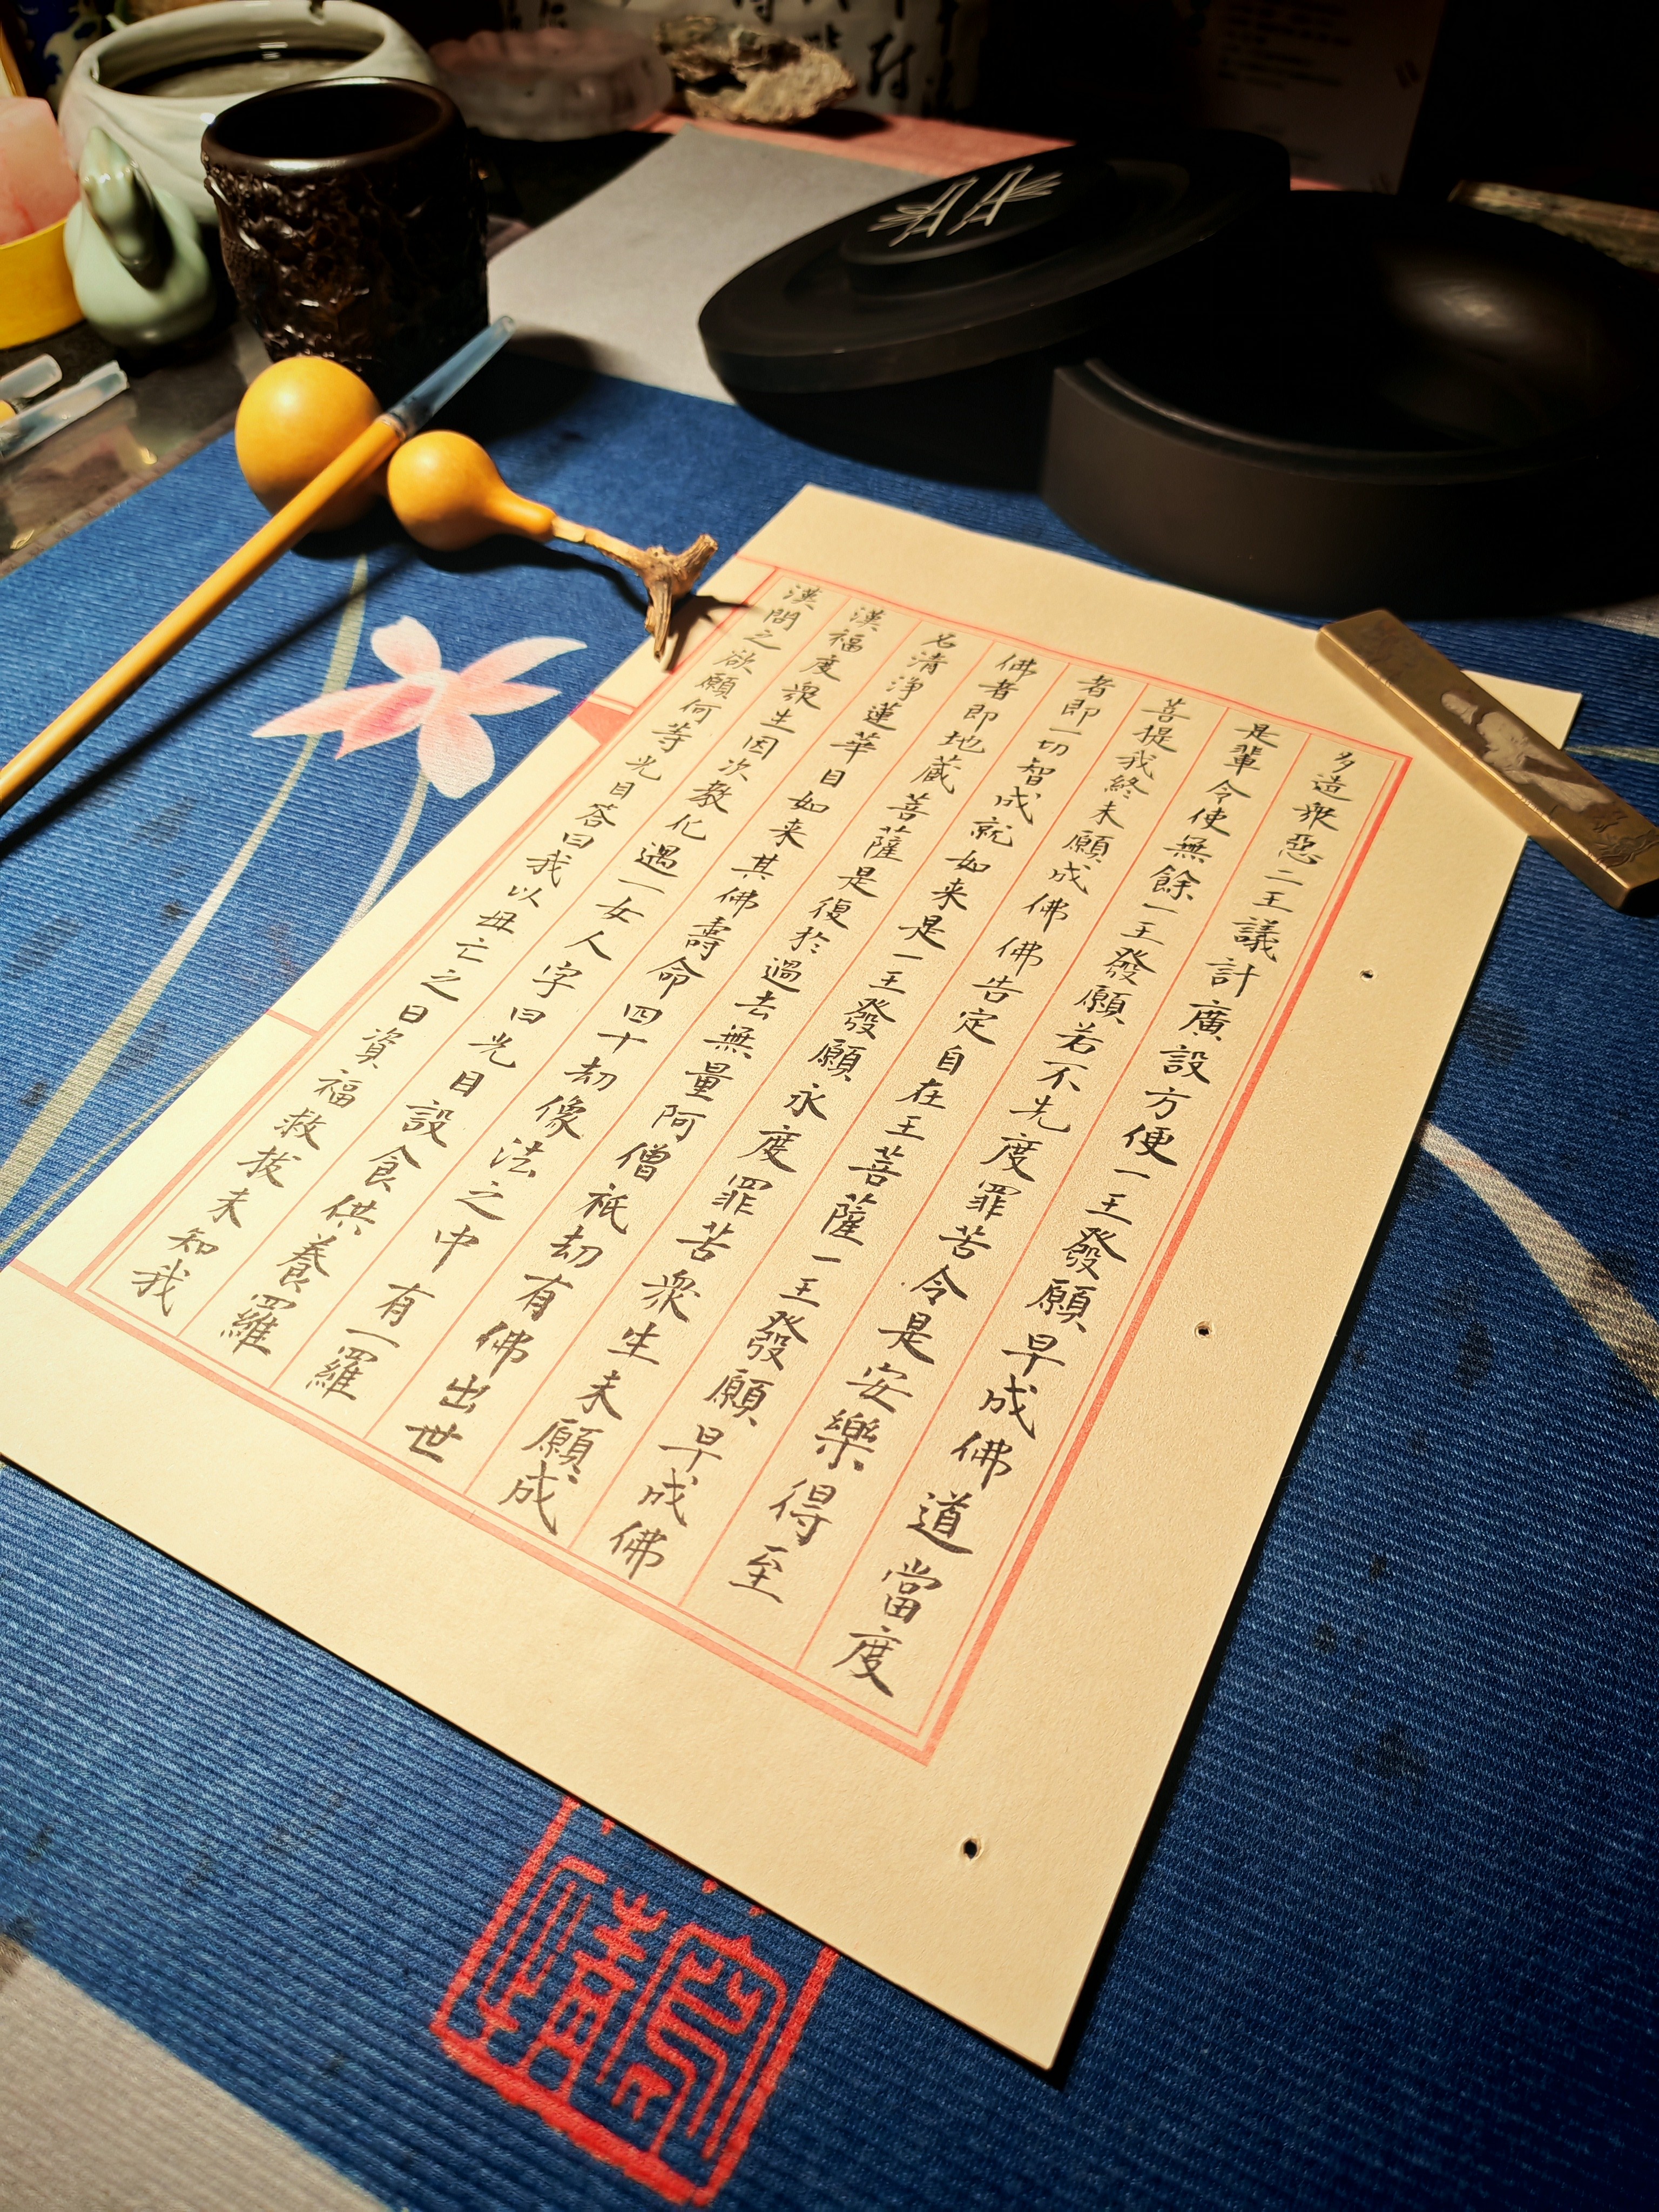 多造衆惡二王議計廣設方便一王發願早成佛道當度
是輩令使無餘一王發願若不先度罪苦令是安樂得至
菩提我終未願成佛佛告定自在王菩薩一王發願早成佛
者即一切智成就如来是一王發願永度罪苦衆生未願成
佛者即地蔵菩薩是復於過去無量阿僧祇劫有佛出世
名清淨蓮華目如来其佛壽命四十劫像法之中有一羅
漢福度衆生因次教化遇一女人字曰光目設食供養羅
漢問之欲願何等光目答曰我以母亡之日資福救拔未知我